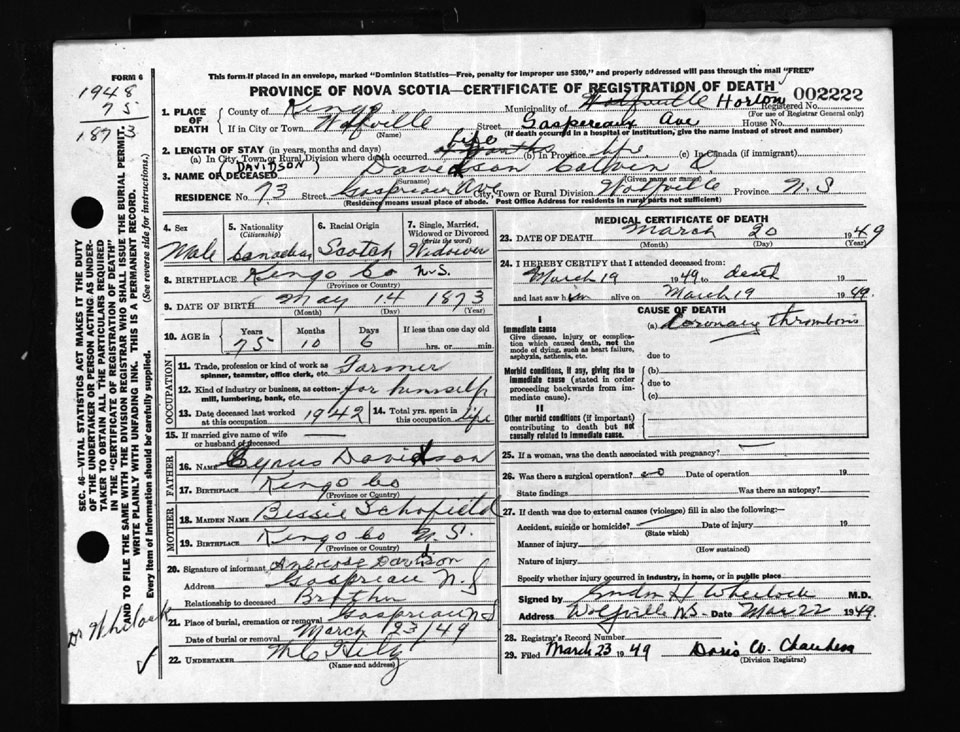 FORM 6
This form if placed in an envelope, marked "Dominion Statistics—Free, penalty for improper use $300," and properly addressed will pass through the mail "FREE"
PROVINCE OF NOVA SCOTIA—CERTIFICATE OF REGISTRATION OF DEATH
002222
1948
75
1873
1. PLACE OF DEATH County of Kings Municipality of Wolfville Horton Registered No.
(For use of Registrar General only)
If in City or Town Wolfville Street Gaspereaux Ave House No.
(Name) (If death occurred in a hospital or institution, give the name instead of street and number)
2. LENGTH OF STAY (in years, months and days)
(a) In City, Town or Rural Division where death occurred life months (b) In Province life (c) In Canada (if immigrant)
(DAVIDSON)
3. NAME OF DECEASED Davidson
(Surname) (Given name or names)
RESIDENCE No. 73 Street Gaspreau Ave City, Town or Rural Division Wolfville Province N.S
(Residence means usual place of abode. Post Office Address for residents in rural parts not sufficient)
4. Sex Male
5. Nationality (Citizenship) Canadian
6. Racial Origin Scotch
7. Single, Married, Widowed or Divorced (write the word) Widower
8. BIRTHPLACE Kings Co N.S.
(Province or County)
9. DATE OF BIRTH May 14 1873
(Month) (Day) (Year)
10. AGE in Years Months Days If less than one day old
75 10 6 hrs. or min.
OCCUPATION
11. Trade, profession or kind of work as spinner, teamster, office clerk, etc. Farmer
12. Kind of industry or business, as cotton-mill, lumbering, bank, etc. for himself
13. Date deceased last worked at this occupation 1942 14. Total yrs. spent in this occupation life
15. If married give name of wife or husband of deceased —
FATHER
16. NAME Cyrus Davidson
17. BIRTHPLACE Kings Co
(Province or County)
MOTHER
18. MAIDEN NAME Bessie Schofield
19. BIRTHPLACE Kings Co N.S.
(Province or County)
20. Signature of informant Ambrose Davidson
Address Gaspreau N.S
Relationship to deceased Brother
21. Place of burial, cremation or removal Gaspreau N S
Date of burial or removal March 23/49
22. UNDERTAKER
(Name and address)
MEDICAL CERTIFICATE OF DEATH
23. DATE OF DEATH March 20 1949
(Month) (Day) (Year)
24. I HEREBY CERTIFY that I attended deceased from:
March 19 1949 to death 19
and last saw him alive on March 19 1949.
CAUSE OF DEATH
I
Immediate cause (a) Coronary thrombosis
Give disease, injury or complication which caused death, not the mode of dying, such as heart failure, asphyxia, asthenia, etc. due to
Morbid conditions, if any, giving rise to immediate cause (stated in order proceeding backwards from immediate cause). (b)
due to
(c)
II
Other morbid conditions (if important) contributing to death but not causally related to immediate cause.
25. If a woman, was the death associated with pregnancy?
26. Was there a surgical operation? no Date of operation 19
State findings Was there an autopsy?
27. If death was due to external causes (violence) fill in also the following:—
Accident, suicide or homicide? Date of injury 19
(State which)
Manner of injury
(How sustained)
Nature of injury
Specify whether injury occurred in industry, in home, or in public place
Signed by H Wheelock M.D.
Address Wolfville N.S. Date Mar 22 1949.
28. Registrar's Record Number
29. Filed March 23 1949 Doris W.
(Division Registrar)
SEC. 46—VITAL STATISTICS ACT MAKES IT THE DUTY
OF THE UNDERTAKER OR PERSON ACTING AS UNDER-
TAKER TO OBTAIN ALL THE PARTICULARS REQUIRED
IN THE "CERTIFICATE OF REGISTRATION OF DEATH"
AND TO FILE THE SAME WITH THE DIVISION REGISTRAR WHO SHALL ISSUE THE BURIAL PERMIT.
WRITE PLAINLY WITH UNFADING INK. THIS IS A PERMANENT RECORD.
Every item of information should be carefully supplied. (See reverse side for instructions.)
Dr Wheelock